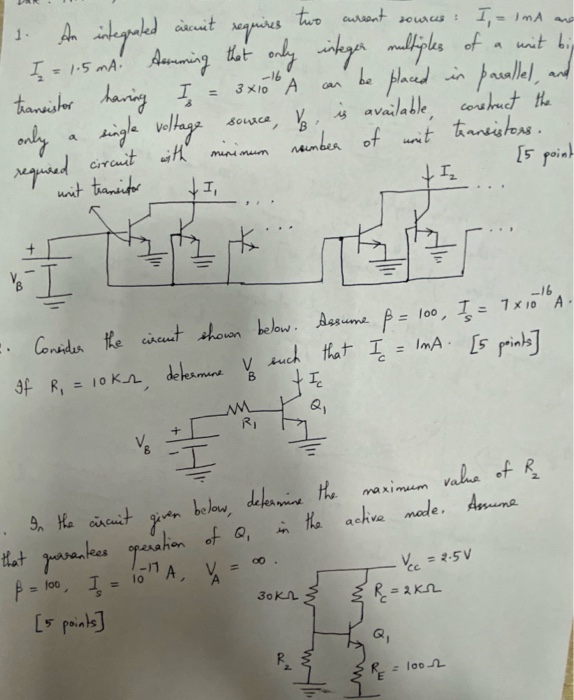 1. An integrated circuit requires two current sources : I₁ = 1mA and
I₂ = 1.5 mA. Assuming that only integer multiples of a unit bi
transistor having I_s = 3×10⁻¹⁶ A can be placed in parallel, and
only a single voltage source, V_B, is available, construct the
required circuit with minimum number of unit transistors.
[5 point
unit transistor
I₁
I₂
+
V_B
-
. Consider the circuit shown below. Assume β = 100, I_s = 7×10⁻¹⁶ A.
If R₁ = 10KΩ, determine V_B such that I_c = 1mA. [5 points]
I_c
R₁
Q₁
+
V_B
-
. In the circuit given below, determine the maximum value of R₂
that guarantees operation of Q₁ in the active mode. Assume
β = 100, I_s = 10⁻¹⁷ A, V_A = ∞.
[5 points]
V_CC = 2.5V
30KΩ
R_C = 2KΩ
Q₁
R₂
R_E = 100Ω